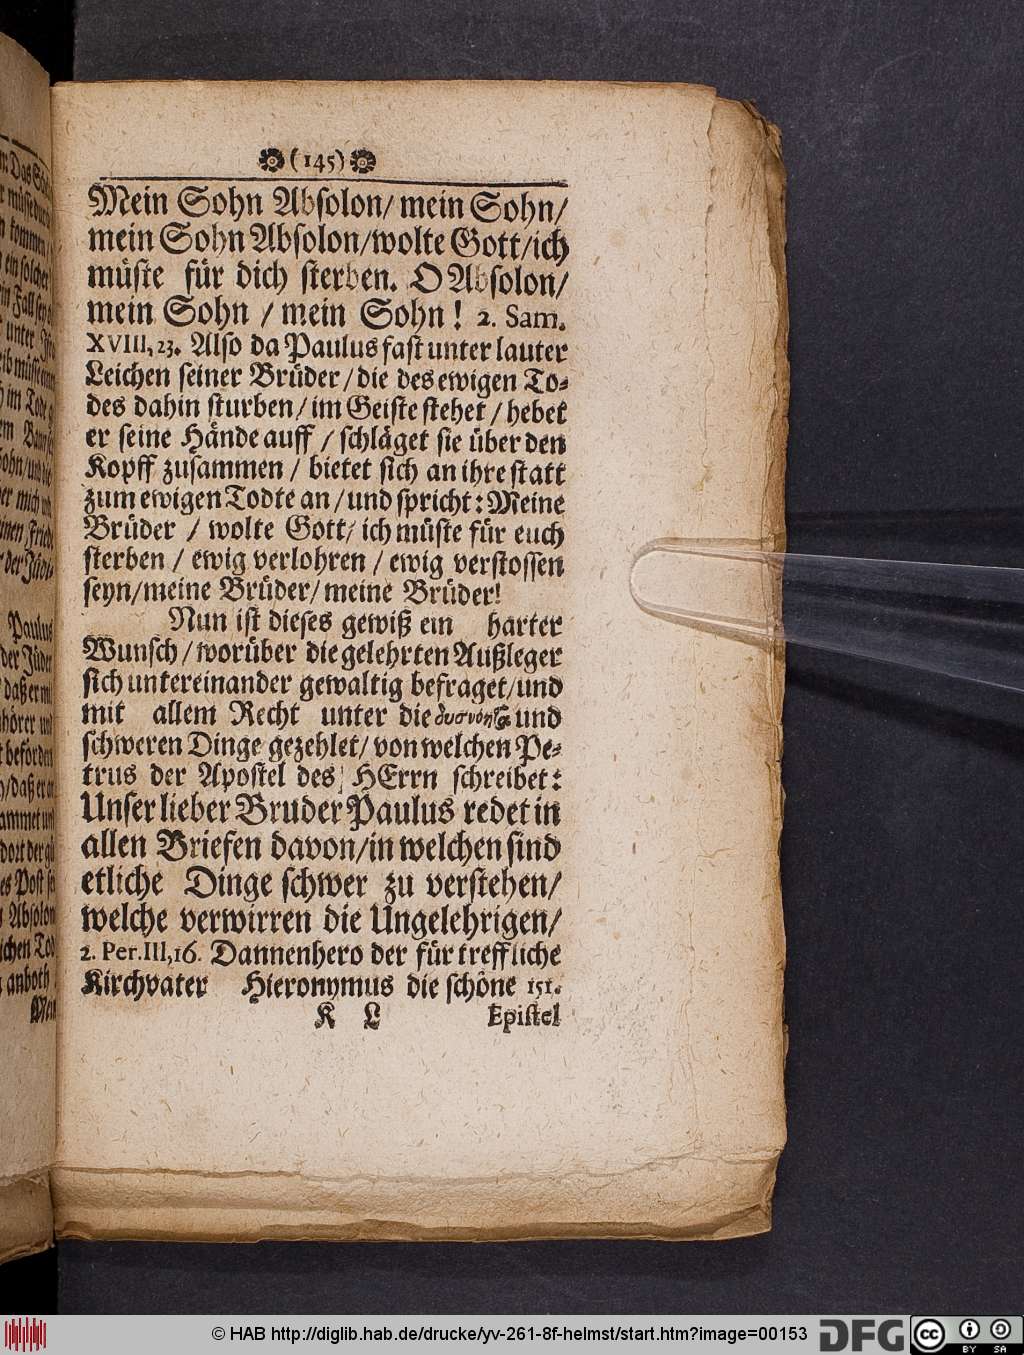 (145)
Mein Sohn Absolon/ mein Sohn/
mein Sohn Absolon/wolte Gott/ich
müste für dich sterben. O Absolon/
mein Sohn / mein Sohn! 2. Sam.
XVIII, 23. Also da Paulus fast unter lauter
Leichen seiner Brüder/ die des ewigen To-
des dahin sturben/ im Geiste stehet / hebet
er seine Hände auff / schläget sie über den
Kopff zusammen / bietet sich an ihre statt
zum ewigen Todte an / und spricht: Meine
Brüder / wolte Gott/ ich müste für euch
sterben / ewig verlohren / ewig verstossen
seyn/meine Brüder/ meine Brüder!
Nun ist dieses gewiß ein harter
Wunsch / worüber die gelehrten Außleger
sich untereinander gewaltig befraget/und
mit allem Recht unter die und
schweren Dinge gezehlet/ von welchen Pe-
trus der Apostel des HErrn schreibet:
Unser lieber Bruder Paulus redet in
allen Briefen davon/in welchen sind
etliche Dinge schwer zu verstehen/
welche verwirren die Ungelehrigen/
2. Per. III, 16. Dannenhero der für treffliche
Kirchvater Hieronymus die schöne 151.
K L Epistel
Paulus
der Jüder
hörer und
Absolon
anboth
Mein
© HAB http://diglib.hab.de/drucke/yv-261-8f-helmst/start.htm?image=00153
DFG
cc BY SA